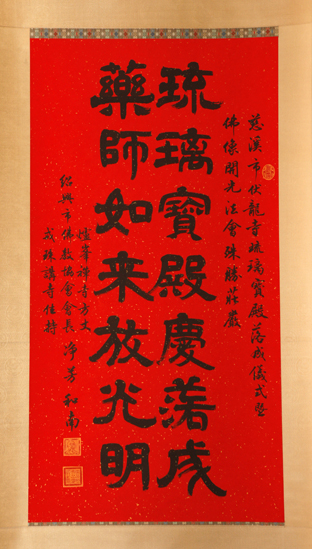 慈溪市伏龍寺琉璃寶殿落成儀式暨
佛像開光法會殊勝莊嚴
琉璃寶殿慶落成
藥師如来放光明
爐峯禪寺方丈
紹興市佛教協會會長 净芳和南
戒珠講寺住持